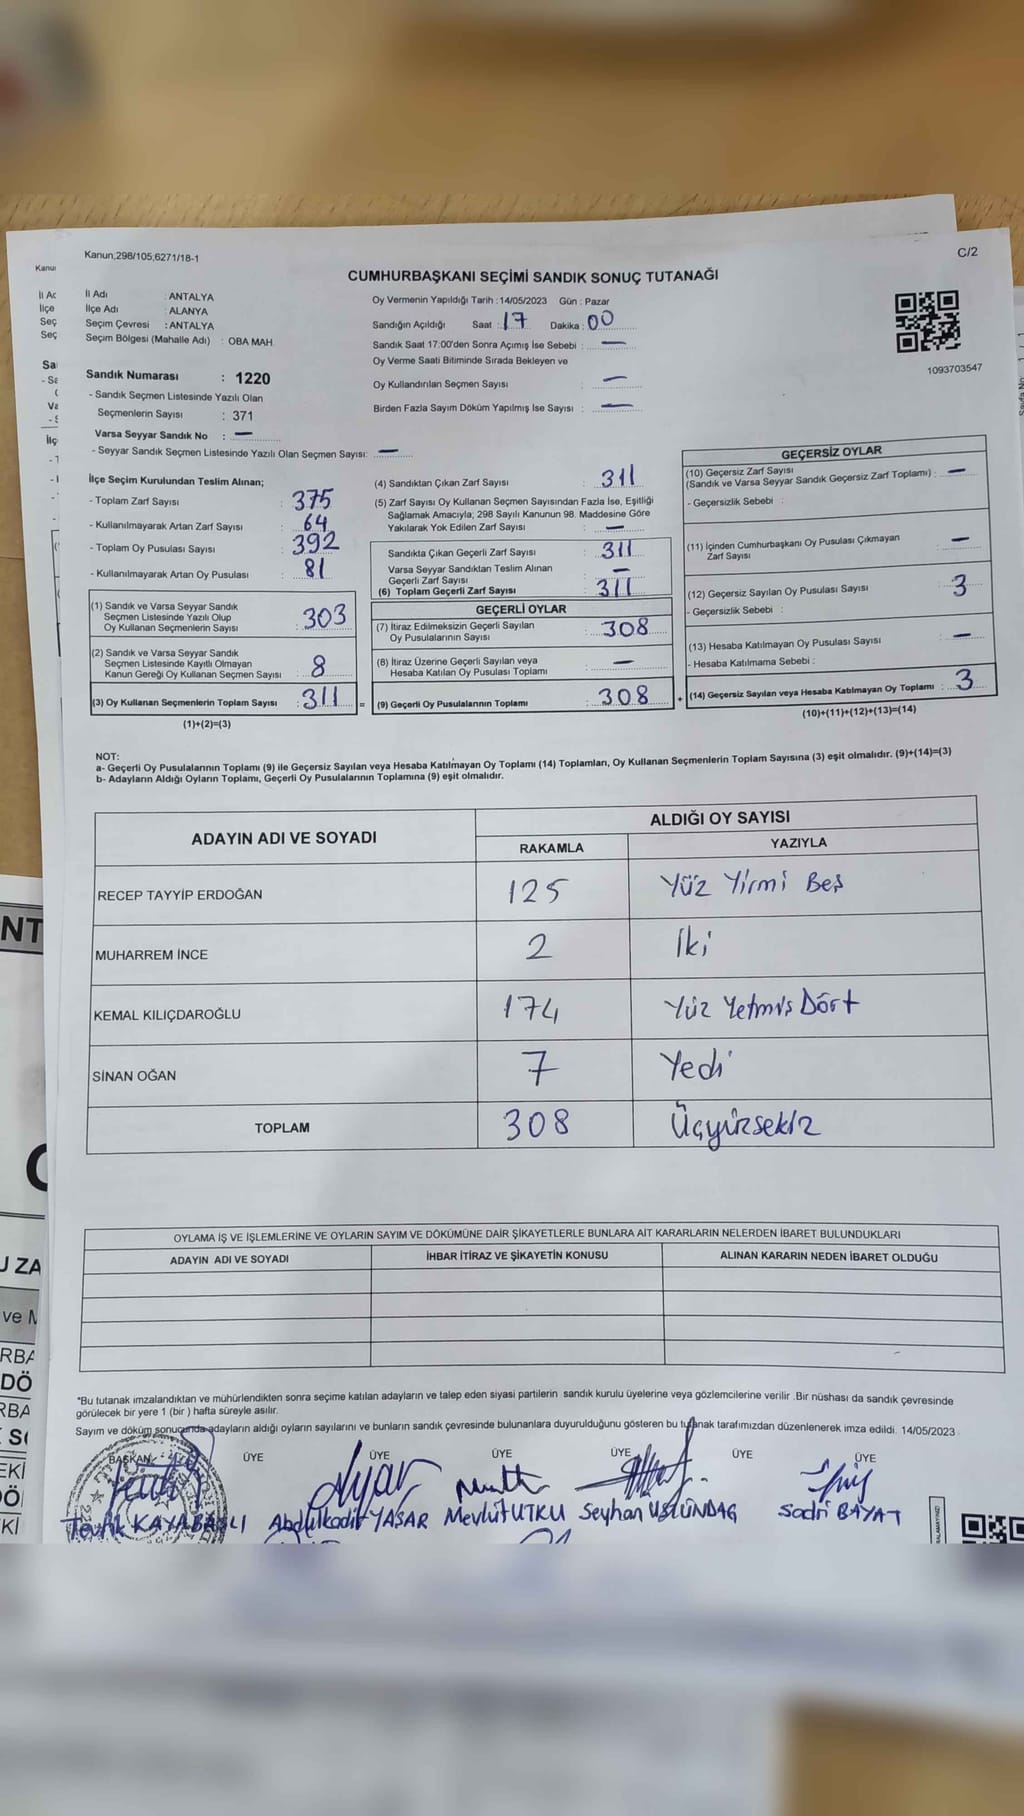 Kanun;298/105;6271/18-1
C/2
CUMHURBAŞKANI SEÇİMİ SANDIK SONUÇ TUTANAĞI
İl Adı : ANTALYA
İlçe Adı : ALANYA
Seçim Çevresi : ANTALYA
Seçim Bölgesi (Mahalle Adı) : OBA MAH.
Sandık Numarası : 1220
- Sandık Seçmen Listesinde Yazılı Olan
Seçmenlerin Sayısı : 371
Varsa Seyyar Sandık No : —
- Seyyar Sandık Seçmen Listesinde Yazılı Olan Seçmen Sayısı: —
Oy Vermenin Yapıldığı Tarih : 14/05/2023 Gün : Pazar
Sandığın Açıldığı Saat : 17 Dakika : 00
Sandık Saat 17:00'den Sonra Açımış İse Sebebi : —
Oy Verme Saati Bitiminde Sırada Bekleyen ve
Oy Kullandırılan Seçmen Sayısı : —
Birden Fazla Sayım Döküm Yapılmış İse Sayısı : —
1093703547
İlçe Seçim Kurulundan Teslim Alınan;
- Toplam Zarf Sayısı : 375
- Kullanılmayarak Artan Zarf Sayısı : 64
- Toplam Oy Pusulası Sayısı : 392
- Kullanılmayarak Artan Oy Pusulası : 81
(1) Sandık ve Varsa Seyyar Sandık
Seçmen Listesinde Yazılı Olup
Oy Kullanan Seçmenlerin Sayısı : 303
(2) Sandık ve Varsa Seyyar Sandık
Seçmen Listesinde Kayıtlı Olmayan
Kanun Gereği Oy Kullanan Seçmen Sayısı : 8
(3) Oy Kullanan Seçmenlerin Toplam Sayısı : 311 =
(1)+(2)=(3)
(4) Sandıktan Çıkan Zarf Sayısı : 311
(5) Zarf Sayısı Oy Kullanan Seçmen Sayısından Fazla İse, Eşitliği
Sağlamak Amacıyla; 298 Sayılı Kanunun 98. Maddesine Göre
Yakılarak Yok Edilen Zarf Sayısı : —
Sandıkta Çıkan Geçerli Zarf Sayısı : 311
Varsa Seyyar Sandıktan Teslim Alınan
Geçerli Zarf Sayısı : —
(6) Toplam Geçerli Zarf Sayısı : 311
GEÇERLİ OYLAR
(7) İtiraz Edilmeksizin Geçerli Sayılan
Oy Pusulalarının Sayısı : 308
(8) İtiraz Üzerine Geçerli Sayılan veya
Hesaba Katılan Oy Pusulası Toplamı : —
(9) Geçerli Oy Pusulalarının Toplamı : 308 +
GEÇERSİZ OYLAR
(10) Geçersiz Zarf Sayısı
(Sandık ve Varsa Seyyar Sandık Geçersiz Zarf Toplamı) : —
- Geçersizlik Sebebi :
(11) İçinden Cumhurbaşkanı Oy Pusulası Çıkmayan
Zarf Sayısı : —
(12) Geçersiz Sayılan Oy Pusulası Sayısı : 3
- Geçersizlik Sebebi :
(13) Hesaba Katılmayan Oy Pusulası Sayısı : —
- Hesaba Katılmama Sebebi :
(14) Geçersiz Sayılan veya Hesaba Katılmayan Oy Toplamı : 3
(10)+(11)+(12)+(13)=(14)
NOT:
a- Geçerli Oy Pusulalarının Toplamı (9) ile Geçersiz Sayılan veya Hesaba Katılmayan Oy Toplamı (14) Toplamları, Oy Kullanan Seçmenlerin Toplam Sayısına (3) eşit olmalıdır. (9)+(14)=(3)
b- Adayların Aldığı Oyların Toplamı, Geçerli Oy Pusulalarının Toplamına (9) eşit olmalıdır.
ADAYIN ADI VE SOYADI ALDIĞI OY SAYISI
RAKAMLA YAZIYLA
RECEP TAYYİP ERDOĞAN 125 Yüz Yirmi Beş
MUHARREM İNCE 2 İki
KEMAL KILIÇDAROĞLU 174 Yüz Yetmiş Dört
SİNAN OĞAN 7 Yedi
TOPLAM 308 Üçyüzsekiz
OYLAMA İŞ VE İŞLEMLERİNE VE OYLARIN SAYIM VE DÖKÜMÜNE DAİR ŞİKAYETLERLE BUNLARA AİT KARARLARIN NELERDEN İBARET BULUNDUKLARI
ADAYIN ADI VE SOYADI İHBAR İTİRAZ VE ŞİKAYETİN KONUSU ALINAN KARARIN NEDEN İBARET OLDUĞU
*Bu tutanak imzalandıktan ve mühürlendikten sonra seçime katılan adayların ve talep eden siyasi partilerin sandık kurulu üyelerine veya gözlemcilerine verilir .Bir nüshası da sandık çevresinde
görülecek bir yere 1 (bir ) hafta süreyle asılır.
Sayım ve döküm sonucunda adayların aldığı oyların sayılarını ve bunların sandık çevresinde bulunanlara duyurulduğunu gösteren bu tutanak tarafımızdan düzenlenerek imza edildi. 14/05/2023
BAŞKAN ÜYE ÜYE ÜYE ÜYE ÜYE ÜYE
Tevfik KAYABAŞLI Abdülkadir YAŞAR Mevlüt UTKU Seyhan ÜSTÜNDAĞ Sadri BAYAT